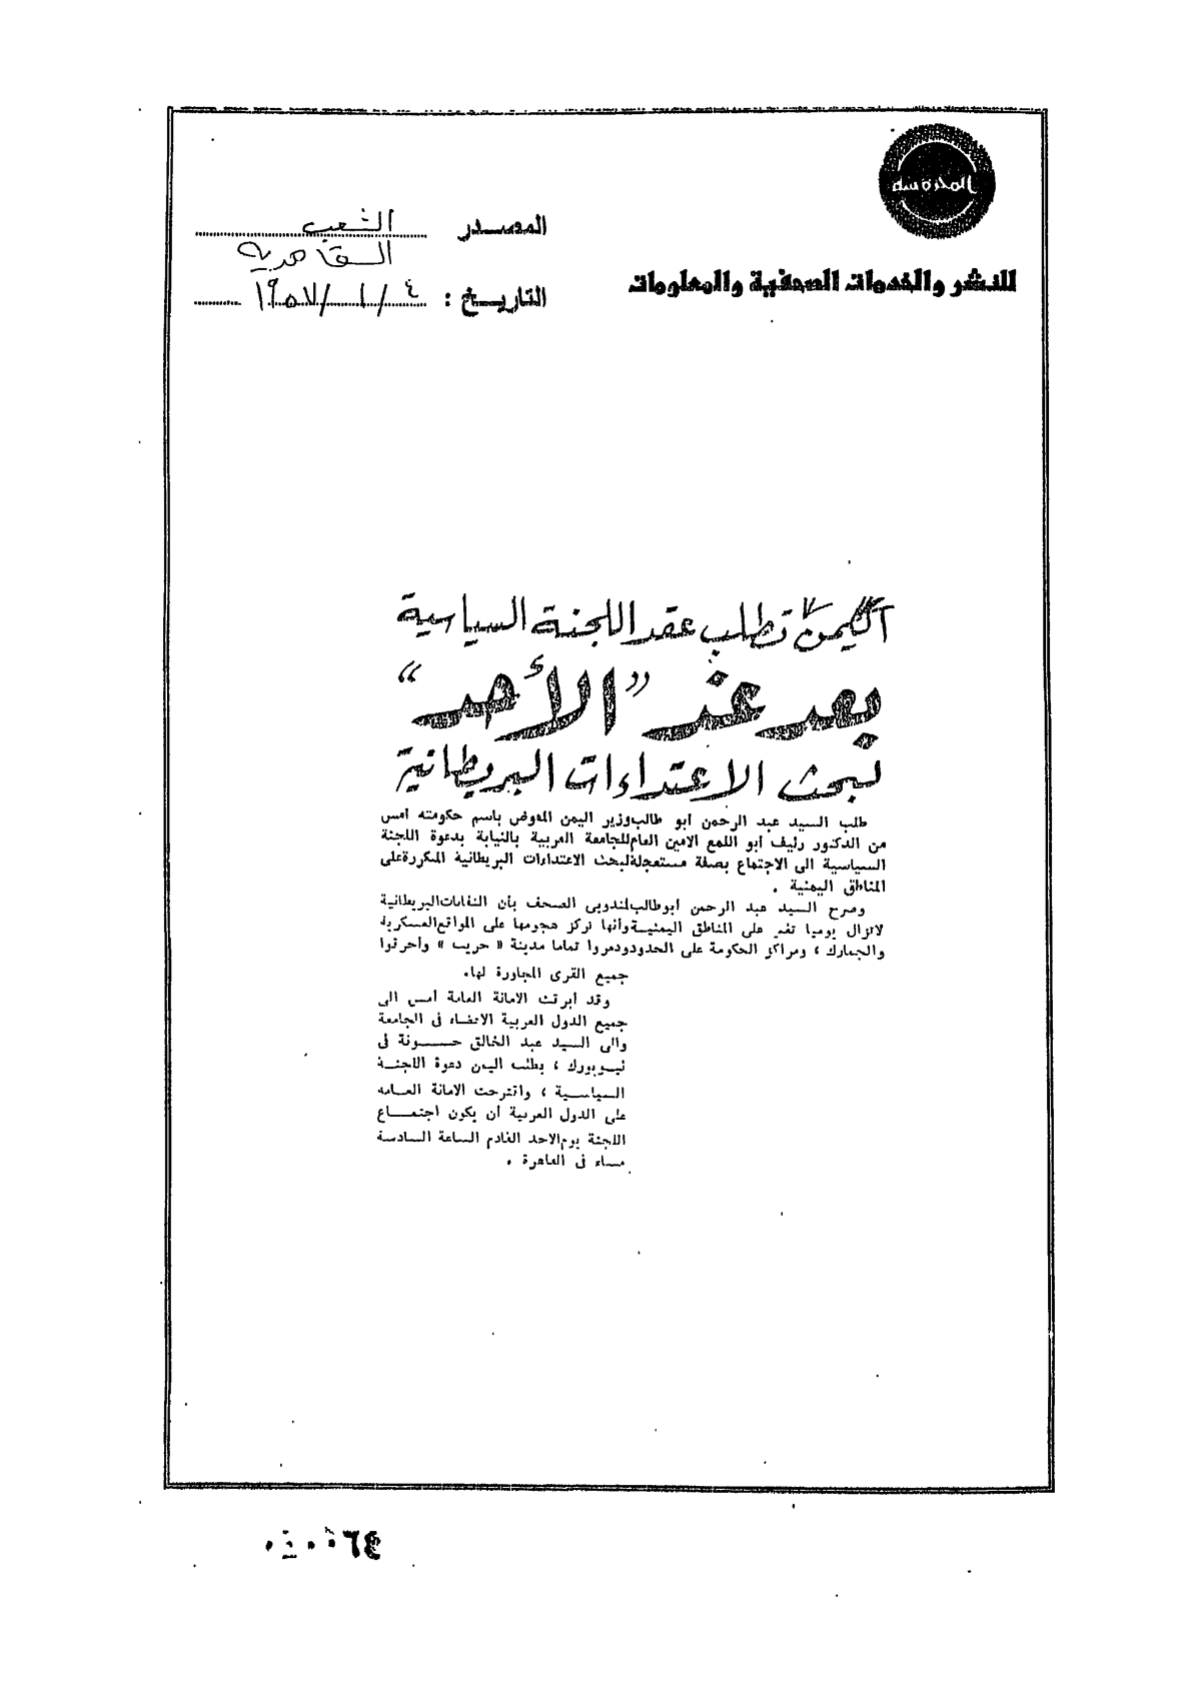 المحروسة
للنشر والخدمات الصحفية والمعلومات
المصدر الشعب
القاهرية
التاريخ : ٤ / ١ / ١٩٥٧
اليمن تطلب عقد اللجنة السياسية
بعد غد "الأحد"
لبحث الاعتداءات البريطانية
طلب السيد عبد الرحمن ابو طالب وزير اليمن المفوض باسم حكومته امس
من الدكتور رئيف ابو اللمع الامين العام للجامعة العربية بالنيابة بدعوة اللجنة
السياسية الى الاجتماع بصفة مستعجلة لبحث الاعتداءات البريطانية المتكررة على
المناطق اليمنية .
وصرح السيد عبد الرحمن ابو طالب لمندوبى الصحف بأن النفاثات البريطانية
لاتزال يوميا تغير على المناطق اليمنيـة وأنها تركز هجومها على المواقع العسكرية
والجمارك ، ومراكز الحكومة على الحدود ودمروا تماما مدينة « حريب » وأحرقوا
جميع القرى المجاورة لها.
وقد أبرقت الامانة العامة أمس الى
جميع الدول العربية الاعضاء فى الجامعة
والى السيد عبد الخالق حسـونة فى
نيويورك ، بطلب اليمن دعوة اللجنـة
السياسـية ، واقترحت الامانة العـامة
على الدول العربية أن يكون اجتمـاع
اللجنة يوم الاحد القادم الساعة السادسة
مساء فى القاهرة .